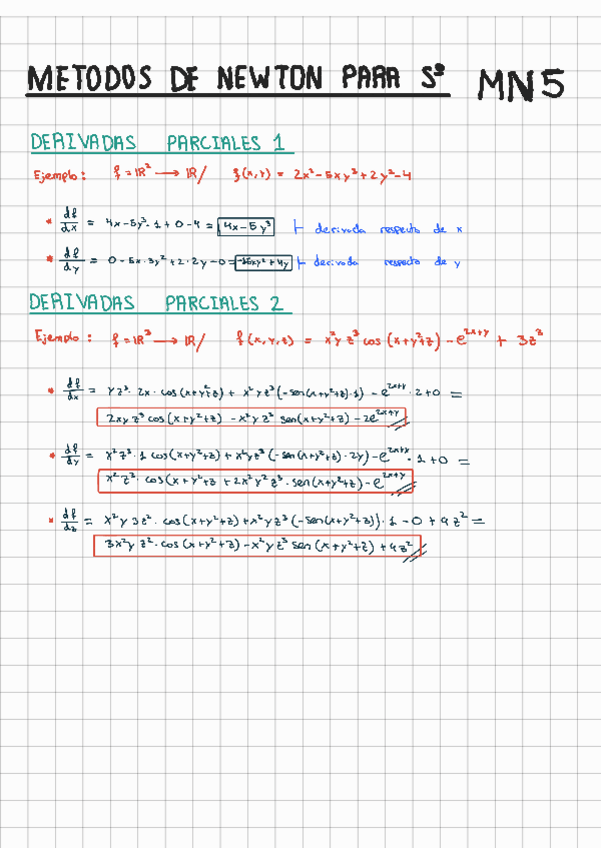 METODOS DE NEWTON PARA Sº MN5
DERIVADAS PARCIALES 1
Ejemplo: f = IR² → IR/ f(x,y) = 2x²-5xy³+2y²-4
* df/dx = 4x-5y³·1+0-4 = 4x-5y³ ⊢ derivada respecto de x
* df/dy = 0-5x·3y²+2·2y-0= -15xy²+4y ⊢ derivada respecto de y
DERIVADAS PARCIALES 2
Ejemplo: f = IR³ → IR/ f(x,y,z) = x²yz³cos(x+y²+z)-e^(2x+y) + 3z³
* df/dx = yz³·2x·cos(x+y²+z)+x²yz³(-sen(x+y²+z)·1)-e^(2x+y)·2+0 =
2xyz³cos(x+y²+z)-x²yz³sen(x+y²+z)-2e^(2x+y)
* df/dy = x²z³·1cos(x+y²+z)+x²yz³(-sen(x+y²+z)·2y)-e^(2x+y)·1+0 =
x²z³·cos(x+y²+z+2x²y²z³·sen(x+y²+z)-e^(2x+y)
* df/dz = x²y3z²·cos(x+y²+z)+x²yz³(-sen(x+y²+z))·1-0+9z² =
3x²yz²·cos(x+y²+z)-x²yz³sen(x+y²+z)+9z²